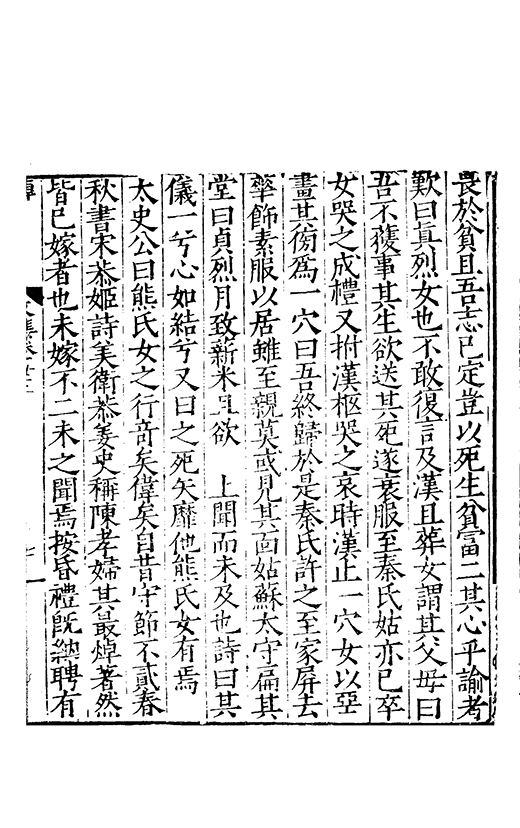 畏於貧且吾志已定豈以死生貧富二其心乎諭考
歎曰真烈女也不敢復言及漢且葬女謂其父母曰
吾不獲事其生欲送其死遂衰服至秦氏姑亦已卒
女哭之成禮又拊漢柩哭之哀時漢止一穴女以堊
畫其傍爲一穴曰吾終歸於是秦氏許之至家屏去
華飾素服以居雖至親莫或見其面姑蘇太守扁其
堂曰貞烈月致新米且欲 上聞而未及也詩曰其
儀一兮心如結兮又曰之死矢靡他熊氏女有焉
太史公曰熊氏女之行竒矣偉矣自昔守節不貳春
秋書宋恭姬詩美衛恭姜史稱陳孝婦其最焯著然
皆已嫁者也未嫁不二未之聞焉按昏禮旣納聘有